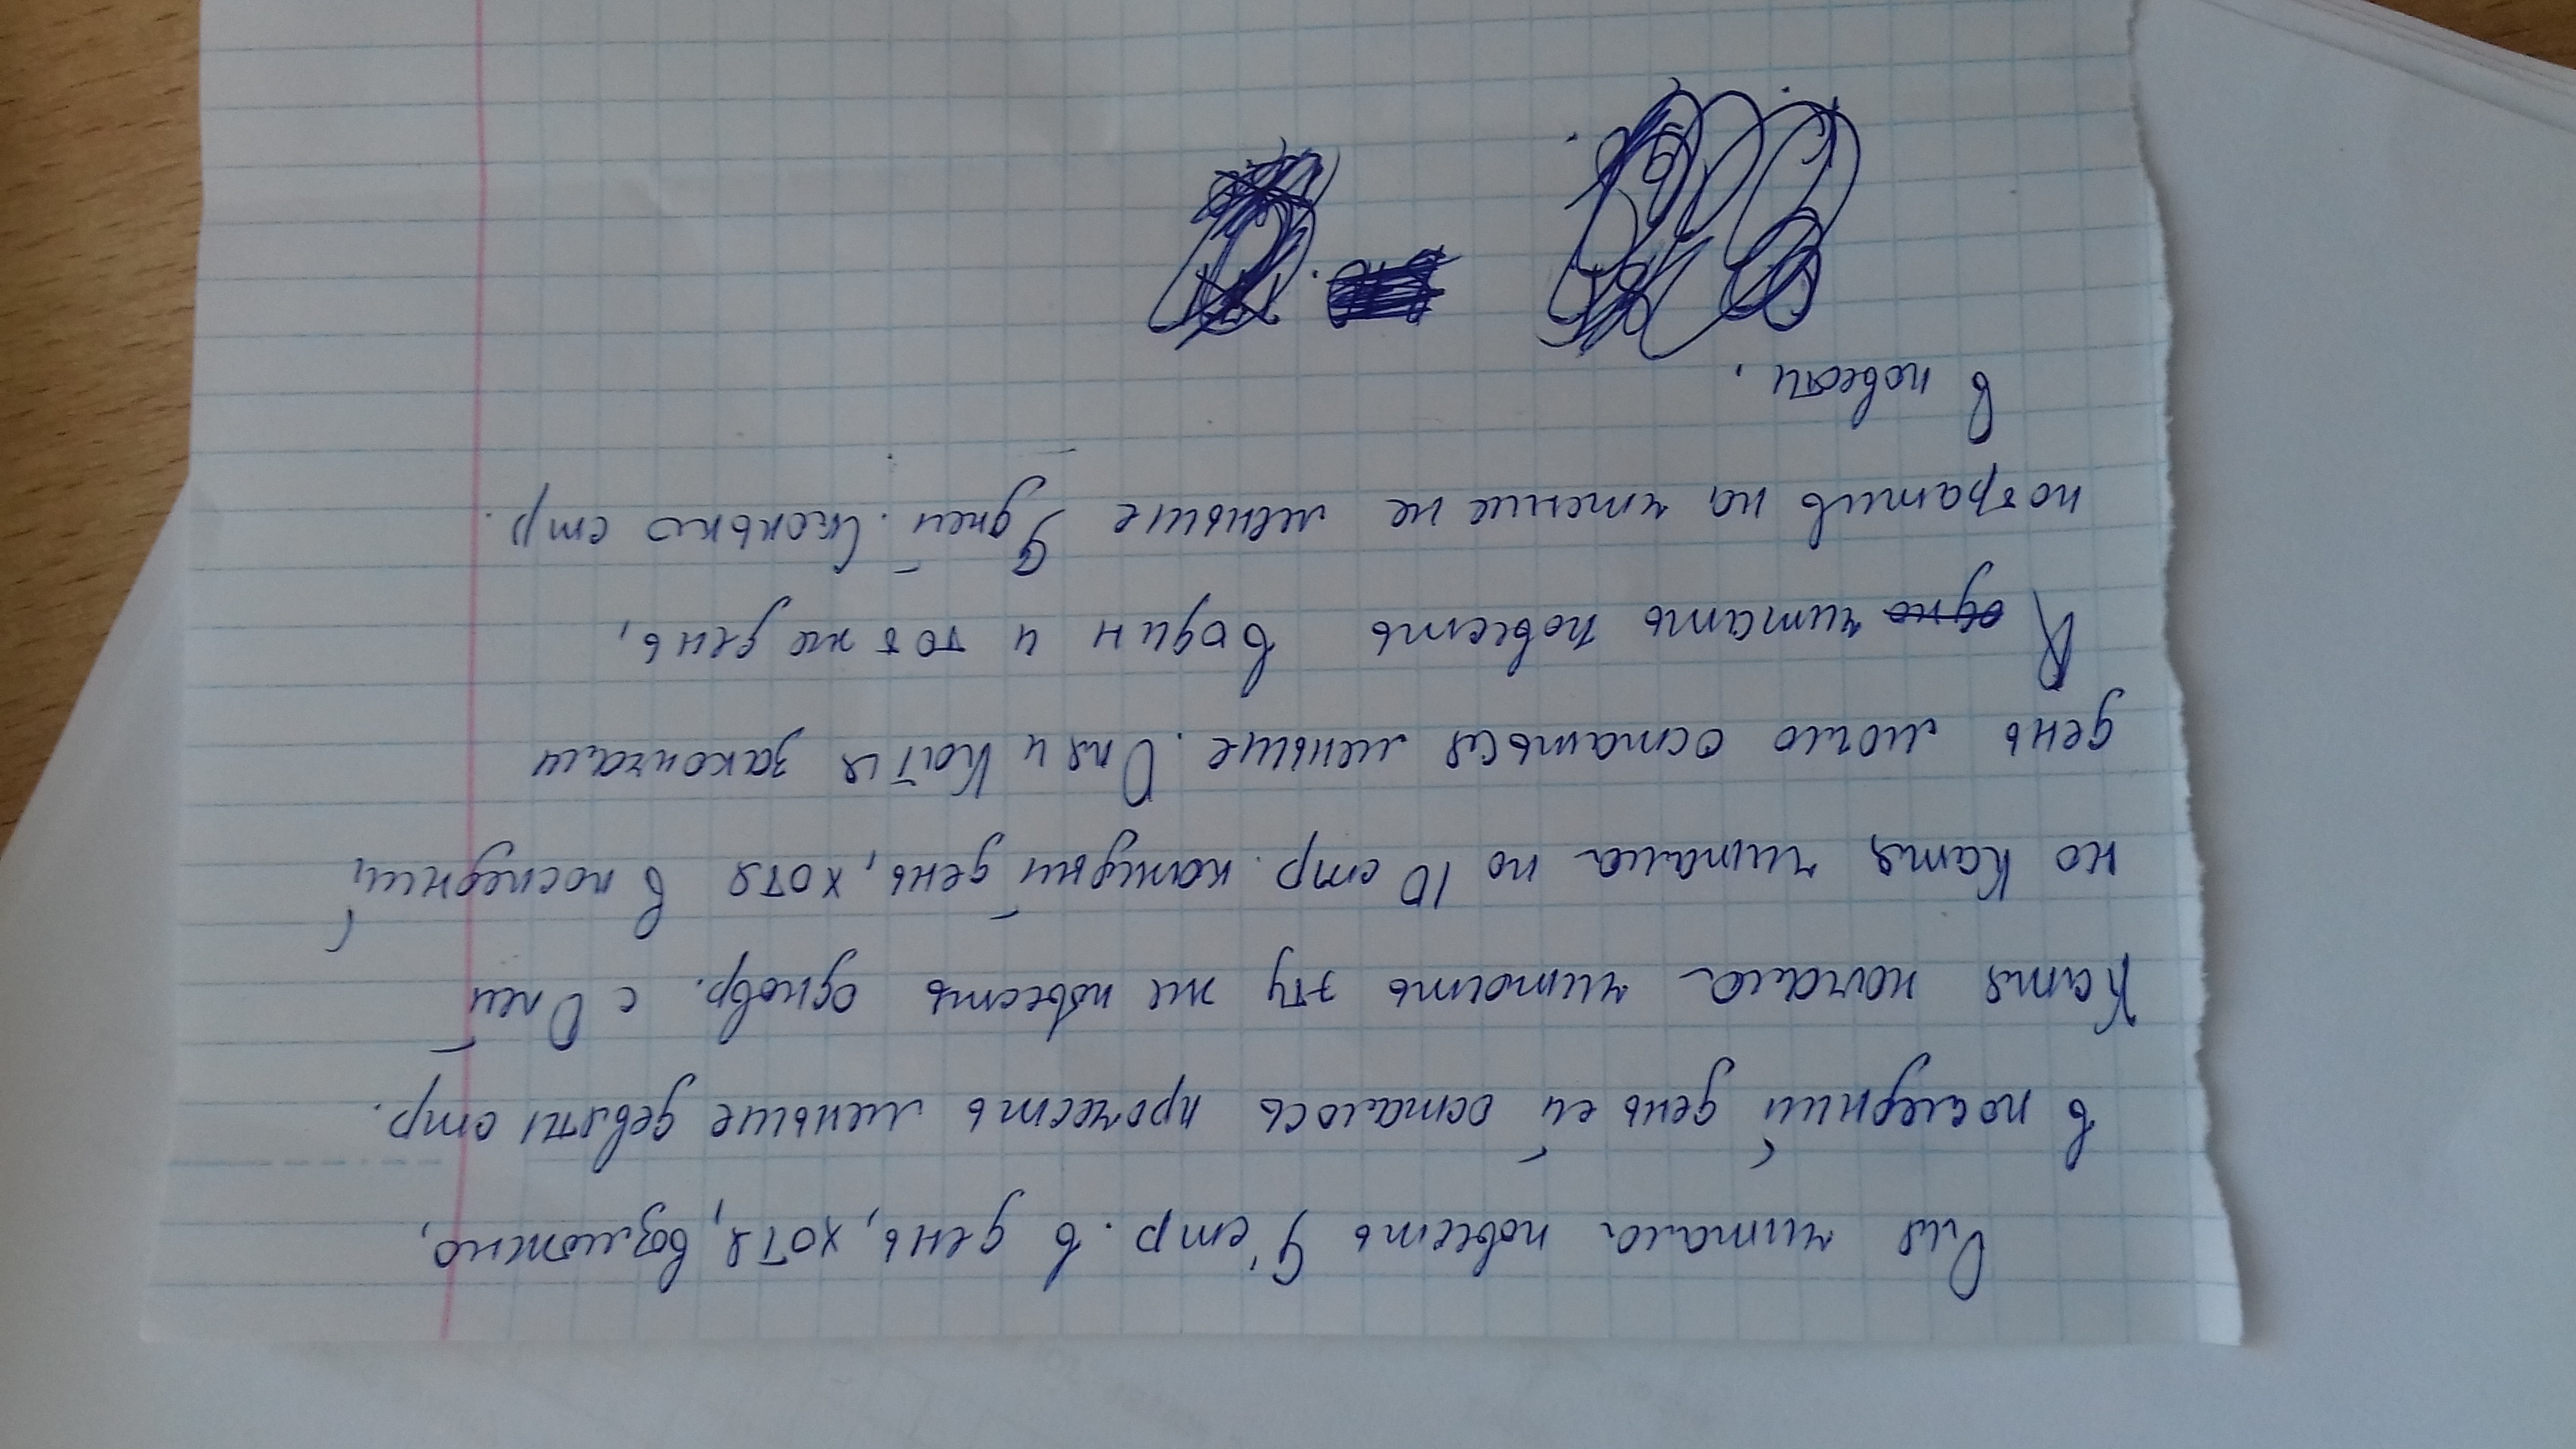 Оля читала повесть 9 стр. в день, хотя, возможно,
в последний день ей осталось прочесть меньше девяти стр.
Катя начала читать эту же повесть одновр. с Олей
но Катя читала по 10 стр. каждый день, хотя в последний
день могло остаться меньше. Оля и Катя закончили
читать повесть в один и тот же день,
потратив на чтение не меньше 9 дней. Сколько стр.
в повести.